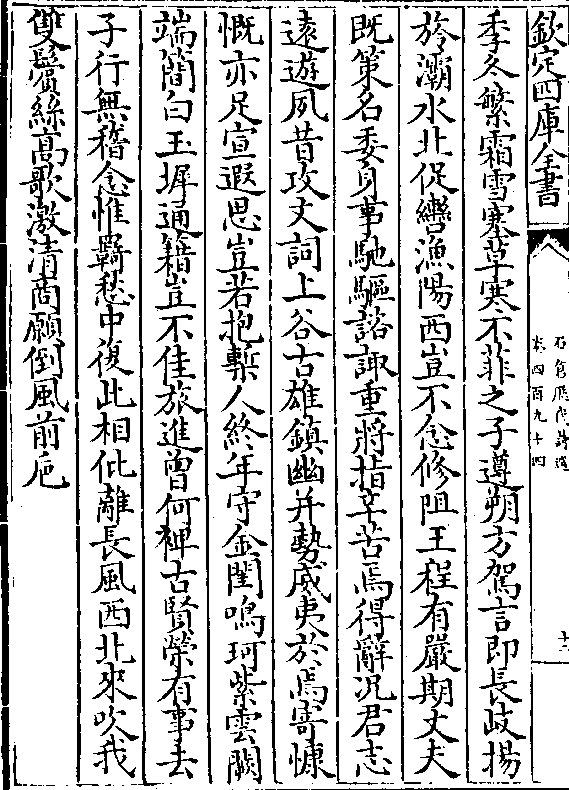 欽定四庫全書
石倉歷代詩選
卷四百九十四
十三
季冬繁霜雪塞草寒不菲之子遵朔方駕言即長岐揚
旍灞水北促轡漁陽西豈不念修阻王程有嚴期丈夫
既策名委身事馳驅諮諏重將指辛苦焉得辭况君志
逺遊夙昔攻文詞上谷古雄鎮幽并勢威夷於焉寄慷
慨亦足宣遐思豈若抱槧人終年守金閨鳴珂紫雲闕
端簡白玉墀通籍豈不佳旅進曽何裨古賢榮有事去
子行無稽念惟羈愁中復此相仳離長風西北來吹我
雙鬢絲高歌激清商願倒風前巵